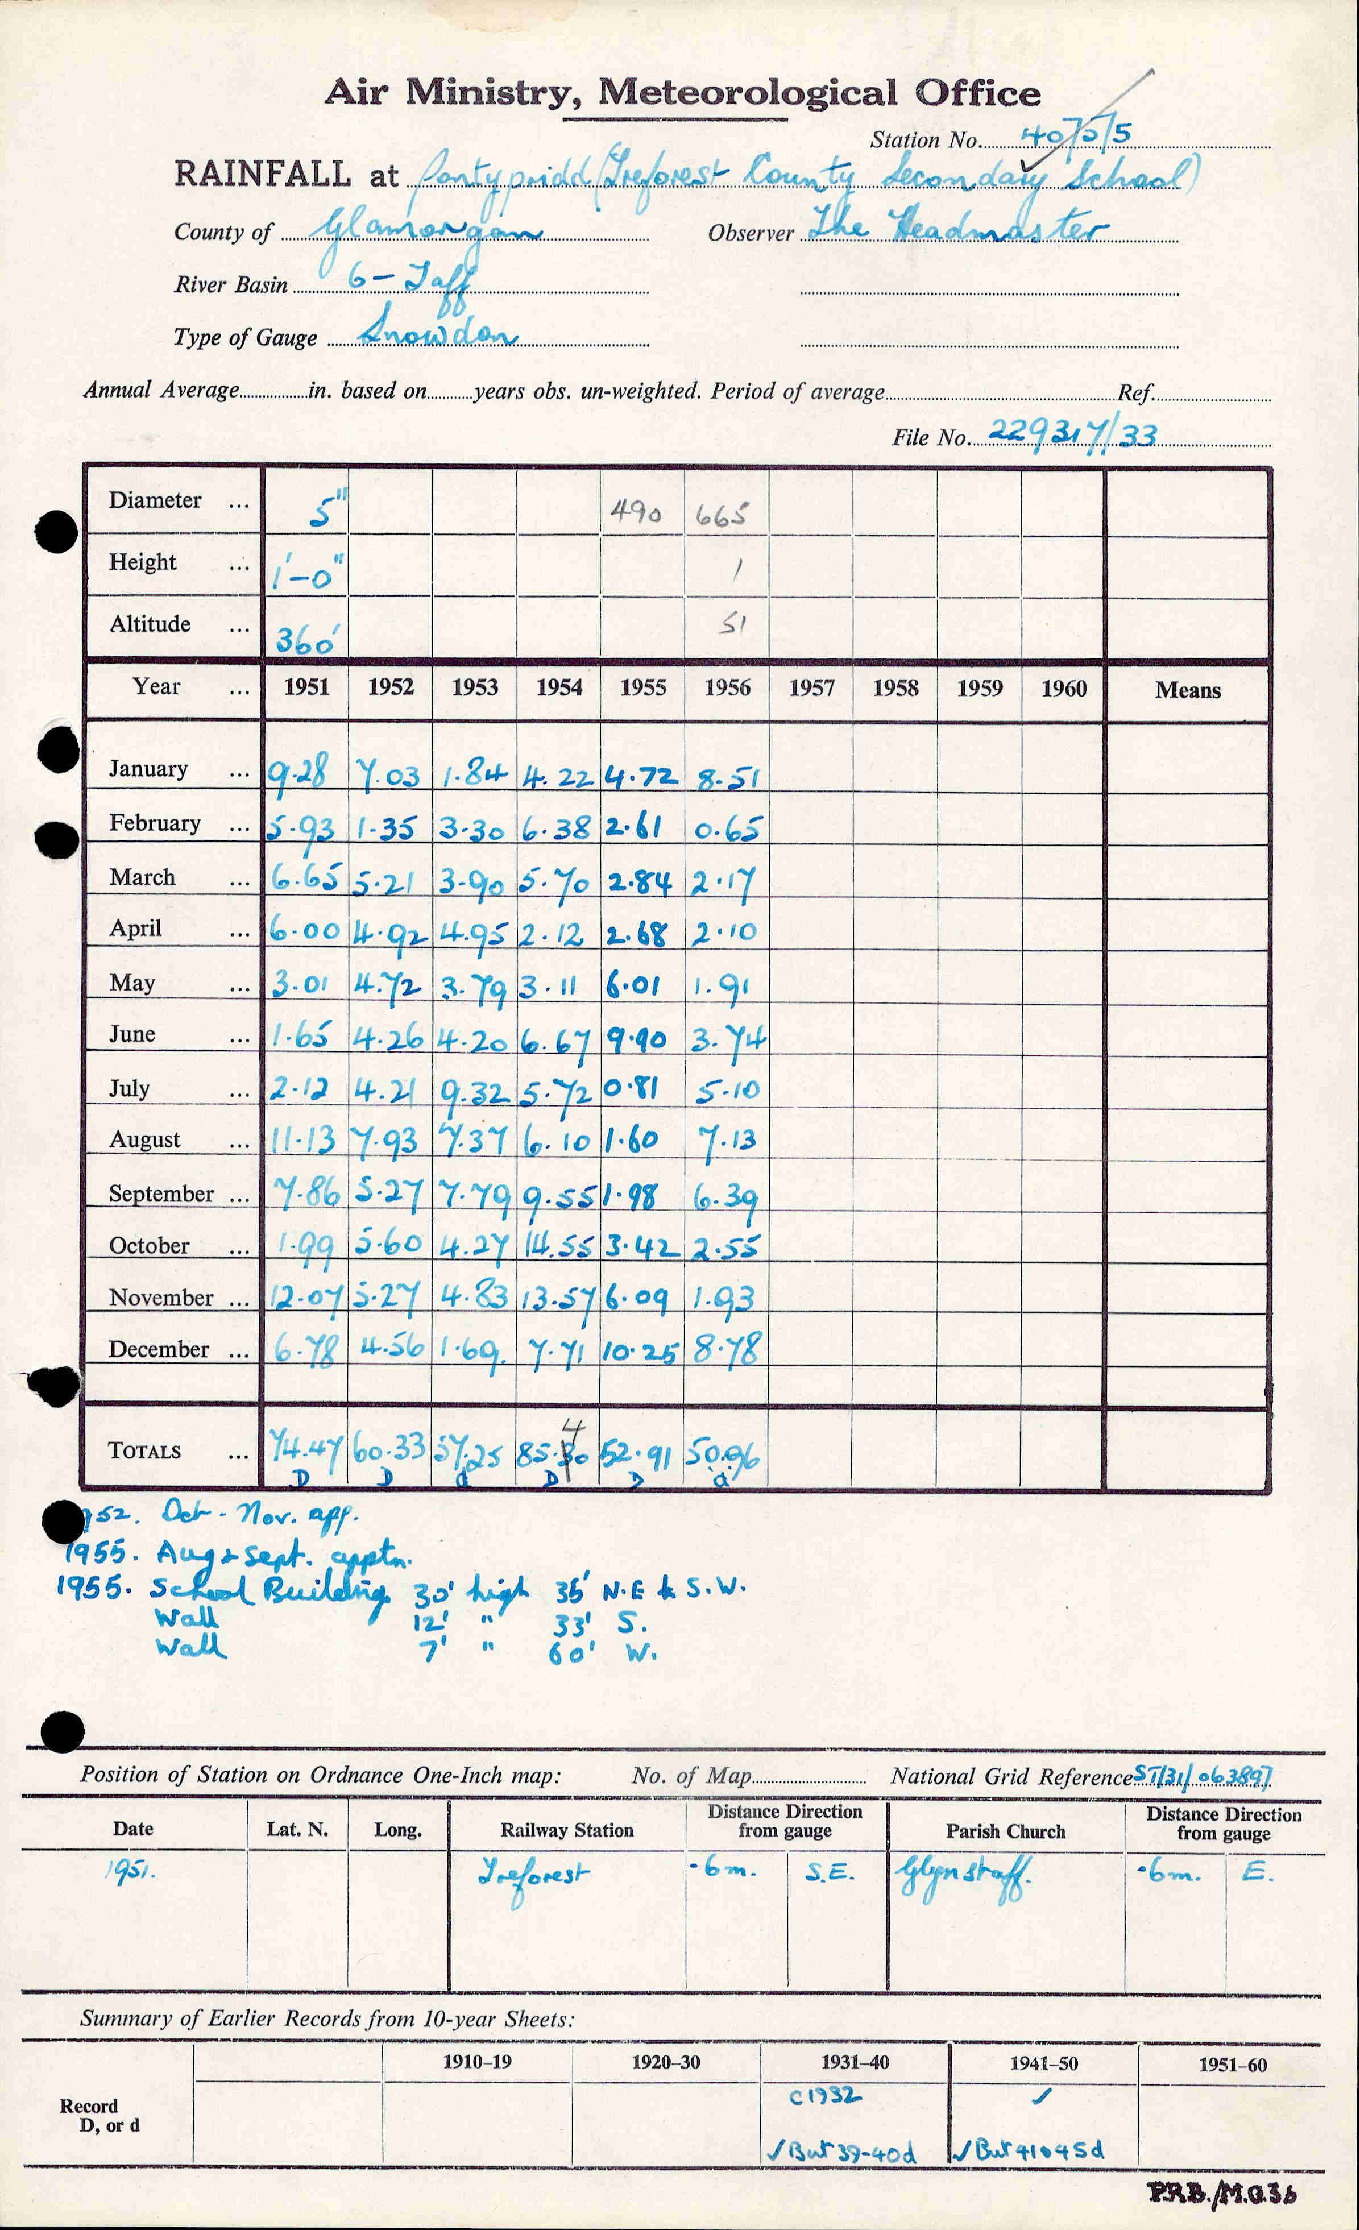 Air Ministry, Meteorological Office
Station No. 4075/5
RAINFALL at Pontypridd (Treforest County Secondary School)
County of Glamorgan Observer The Headmaster
River Basin 6 - Taff
Type of Gauge Snowdon
Annual Average in. based on years obs. un-weighted. Period of average Ref.
File No. 229317/33
Diameter ... 5" 490 665
Height ... 1'-0" 1
Altitude ... 360' 51
Year ... 1951 1952 1953 1954 1955 1956 1957 1958 1959 1960 Means
January ... 9.28 7.03 1.84 4.22 4.72 8.51
February ... 5.93 1.35 3.30 6.38 2.61 0.65
March ... 6.65 5.21 3.90 5.70 2.84 2.17
April ... 6.00 4.92 4.95 2.12 2.68 2.10
May ... 3.01 4.72 3.79 3.11 6.01 1.91
June ... 1.65 4.26 4.20 6.67 9.90 3.74
July ... 2.12 4.21 9.32 5.72 0.81 5.10
August ... 11.13 7.93 7.37 6.10 1.60 7.13
September ... 7.86 5.27 7.79 9.55 1.98 6.39
October ... 1.99 5.60 4.27 14.55 3.42 2.55
November ... 12.07 5.27 4.83 13.57 6.09 1.93
December ... 6.78 4.56 1.69. 7.71 10.25 8.78
4
TOTALS ... 74.47 60.33 57.25 85.30 52.91 50.96
D D d D D d
52. Oct - Nov. app.
1955. Aug & Sept. apptn.
1955. School Building 30' high 35' N.E & S.W.
Wall 12' " 33' S.
Wall 7' " 60' W.
Position of Station on Ordnance One-Inch map: No. of Map National Grid Reference ST/31/063897
Distance Direction Distance Direction
Date Lat. N. Long. Railway Station from gauge Parish Church from gauge
1951. Treforest .6m. S.E. Glyntaff. .6m. E.
Summary of Earlier Records from 10-year Sheets:
1910–19 1920–30 1931–40 1941–50 1951–60
Record c1932 ✓
D, or d
✓ But 39-40d ✓ But 41045d
P.R.B./M.O.36